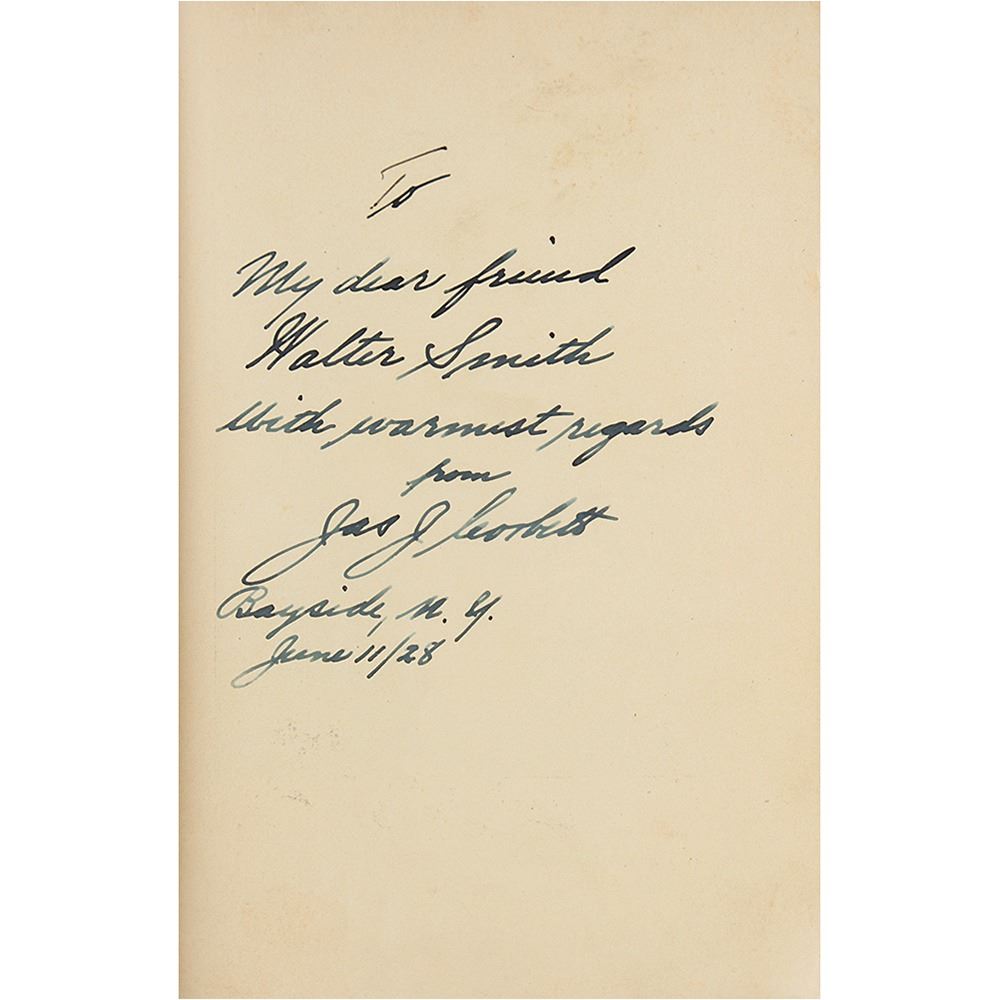 To
My dear friend
Walter Smith
With warmest regards
from
Jas J Corbett
Bayside, N. Y.
June 11/28